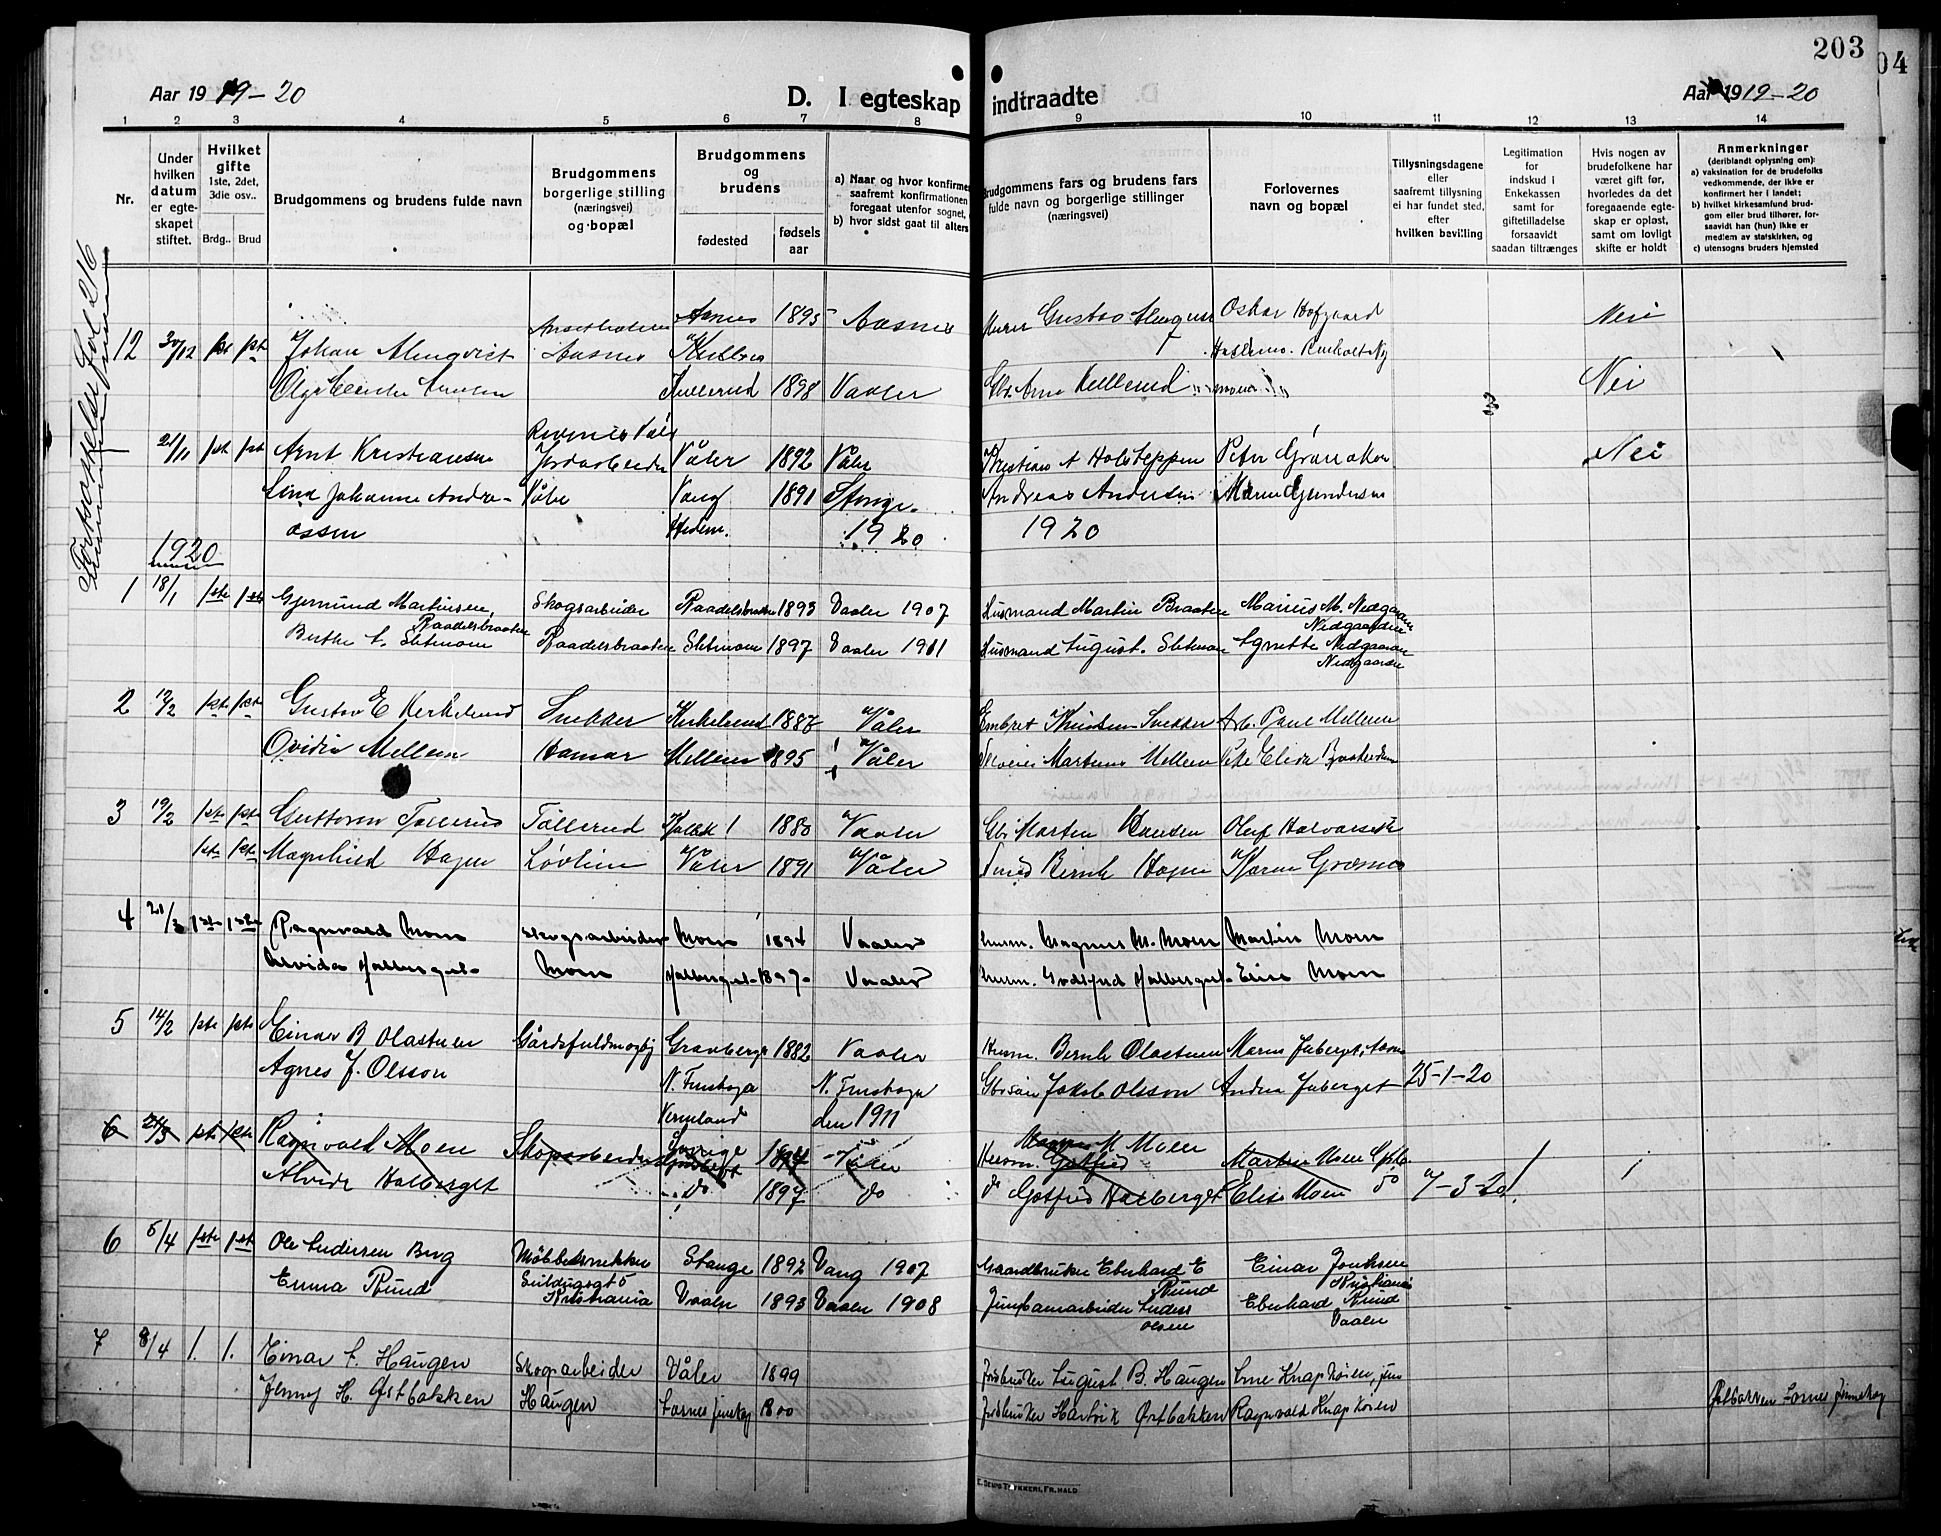 203
04
Aar 1919-20
D. I egteskap indtraadte
Aar 1919-20
1 2 3 4 5 6 7 8 9 10 11 12 13 14
Nr.
Under hvilken datum er egte-skapet stiftet.
Hvilket gifte
1ste, 2det, 3die osv..
Brdg.. Brud
Brudgommens og brudens fulde navn
Brudgommens borgerlige stilling (næringsvei) og bopæl
Brudgommens og brudens
fødested
fødsels aar
a) Naar og hvor konfirme
saafremt konfirmationen
foregaat utenfor sognet,
b) hvor sidst gaat til alters
Brudgommens fars og brudens fars
fulde navn og borgerlige stillinger
(næringsvei)
Forlovernes
navn og bopæl
Tillysningsdagene
eller
saafremt tillysning
ei har fundet sted,
efter
hvilken bevilling
Legitimation
for
indskud i
Enkekassen
samt for
giftetilladelse
forsaavidt
saadan tiltrænges
Hvis nogen av
brudefolkene har
været gift før,
hvorledes da det
foregaaende egte-
skap er opløst,
samt om lovligt
skifte er holdt
Anmerkninger
(deriblandt oplysning om):
a) vaksination for de brudefolks
vedkommende, der ikke er
konfirmert her i landet;
b) hvilket kirkesamfund brud-
gom eller brud tilhører, for-
saavidt han (hun) ikke er
medlem av statskirken, og
c) utensogns bruders hjemsted
Fortsættelse Fol 216
12 30/12 1st 1st Johan Almqvist Aasnes 1895 Aasnes Murer Gustav Oskar Hofgaard Nei
1898 Vaaler Arne Kullerud Nei
21/11 1st 1st Arnt Kristiansen Våler 1892 Våler Kristian A Holsteppen Peter Grønaker Nei
Lina Johanne Andre- Våler Vang 1891 Stange. Andreas Andersen Maren Gundersen
assen Hedem. 1920 1920
1920
1 18/1 1ste 1ste Gjermund Martinsen, Skogsarbeider Raadelsbraaten 1893 Vaaler 1907 Husmand Martin Braaten Marius M. Nedgaarden
Raadelsbraaten Nedgaarden
Berthe A. Sletmoen Raadelsbraaten Sletmoen 1897 Vaaler 1911 Husmand August. Sletmoen Agnethe Nedgaarden
Nedgaarden
2 12/2 1ste 1ste Gustav E Kirkelund Snekker Kirkelund 1887 Våler Embret Knutsen Snekker Arb. Paul Mellem
Ovidia Mellem Hamar Mellem 1895 Våler Martinus Mellem
3 19/2 1ste 1ste Guttorm Tollerud Tollerud 1880 Vaaler Gbr Morten Hansen Oluf Halvorseth
1ste 1ste Magnhild Hagen Løvlien Våler 1891 Våler Bernh Hagen Karen Grasmo
4 21/3 1ste 1ste Ragnvald Moen skogsarbeider Moen 1894 Vaaler husm. Magnus M. Moen Martin Moen
Alvida Halberget- Moen Halberget- 1897- Vaaler husm. Godtfred Halberget- Elise Moen
5 14/2 1ste 1ste Einar B Olastuen Gravberget 1882 Vaaler Husm. Bernh Olastuen
Agnes J. Olsson N. Finskoga N. Finskoga Jakob Olsson Andrea Juberget 25-1-20
Vermland den 1911
Sverige
6 21/3 1ste 1ste Ragnvald Moen Skogsarbeider 1894 Våler Husm. Magnus M Moen Gotfred Martin Moen
Alvide Halberget do 1897 do do Gotfred Halberget Elise Moen do 7-3-20!
6 5/4 1ste 1ste Ole Andersen Berg Møbelsnekker Stange 1892 Vang 1907 Gaardbruker Eberhard E Rund Einar Kristiania
Emma Rund Kristiania Vaaler 1893 Vaaler 1908 Jernbanearbeider Anders Olsen Eberhard Rund Vaaler
7 8/4 1. 1. Einar A. Haugen Skogsarbeider Våler 1899 Jordbruker August B. Haugen Arne Knapkøien, jun
Jenny H. Østbakken Haugen 1800 Jordbruker Hartvik Østbakken Ragnvald Knapkøien Østbakken Aasnes Finskog
E. SEMS TRYKKERI, FR.HALD